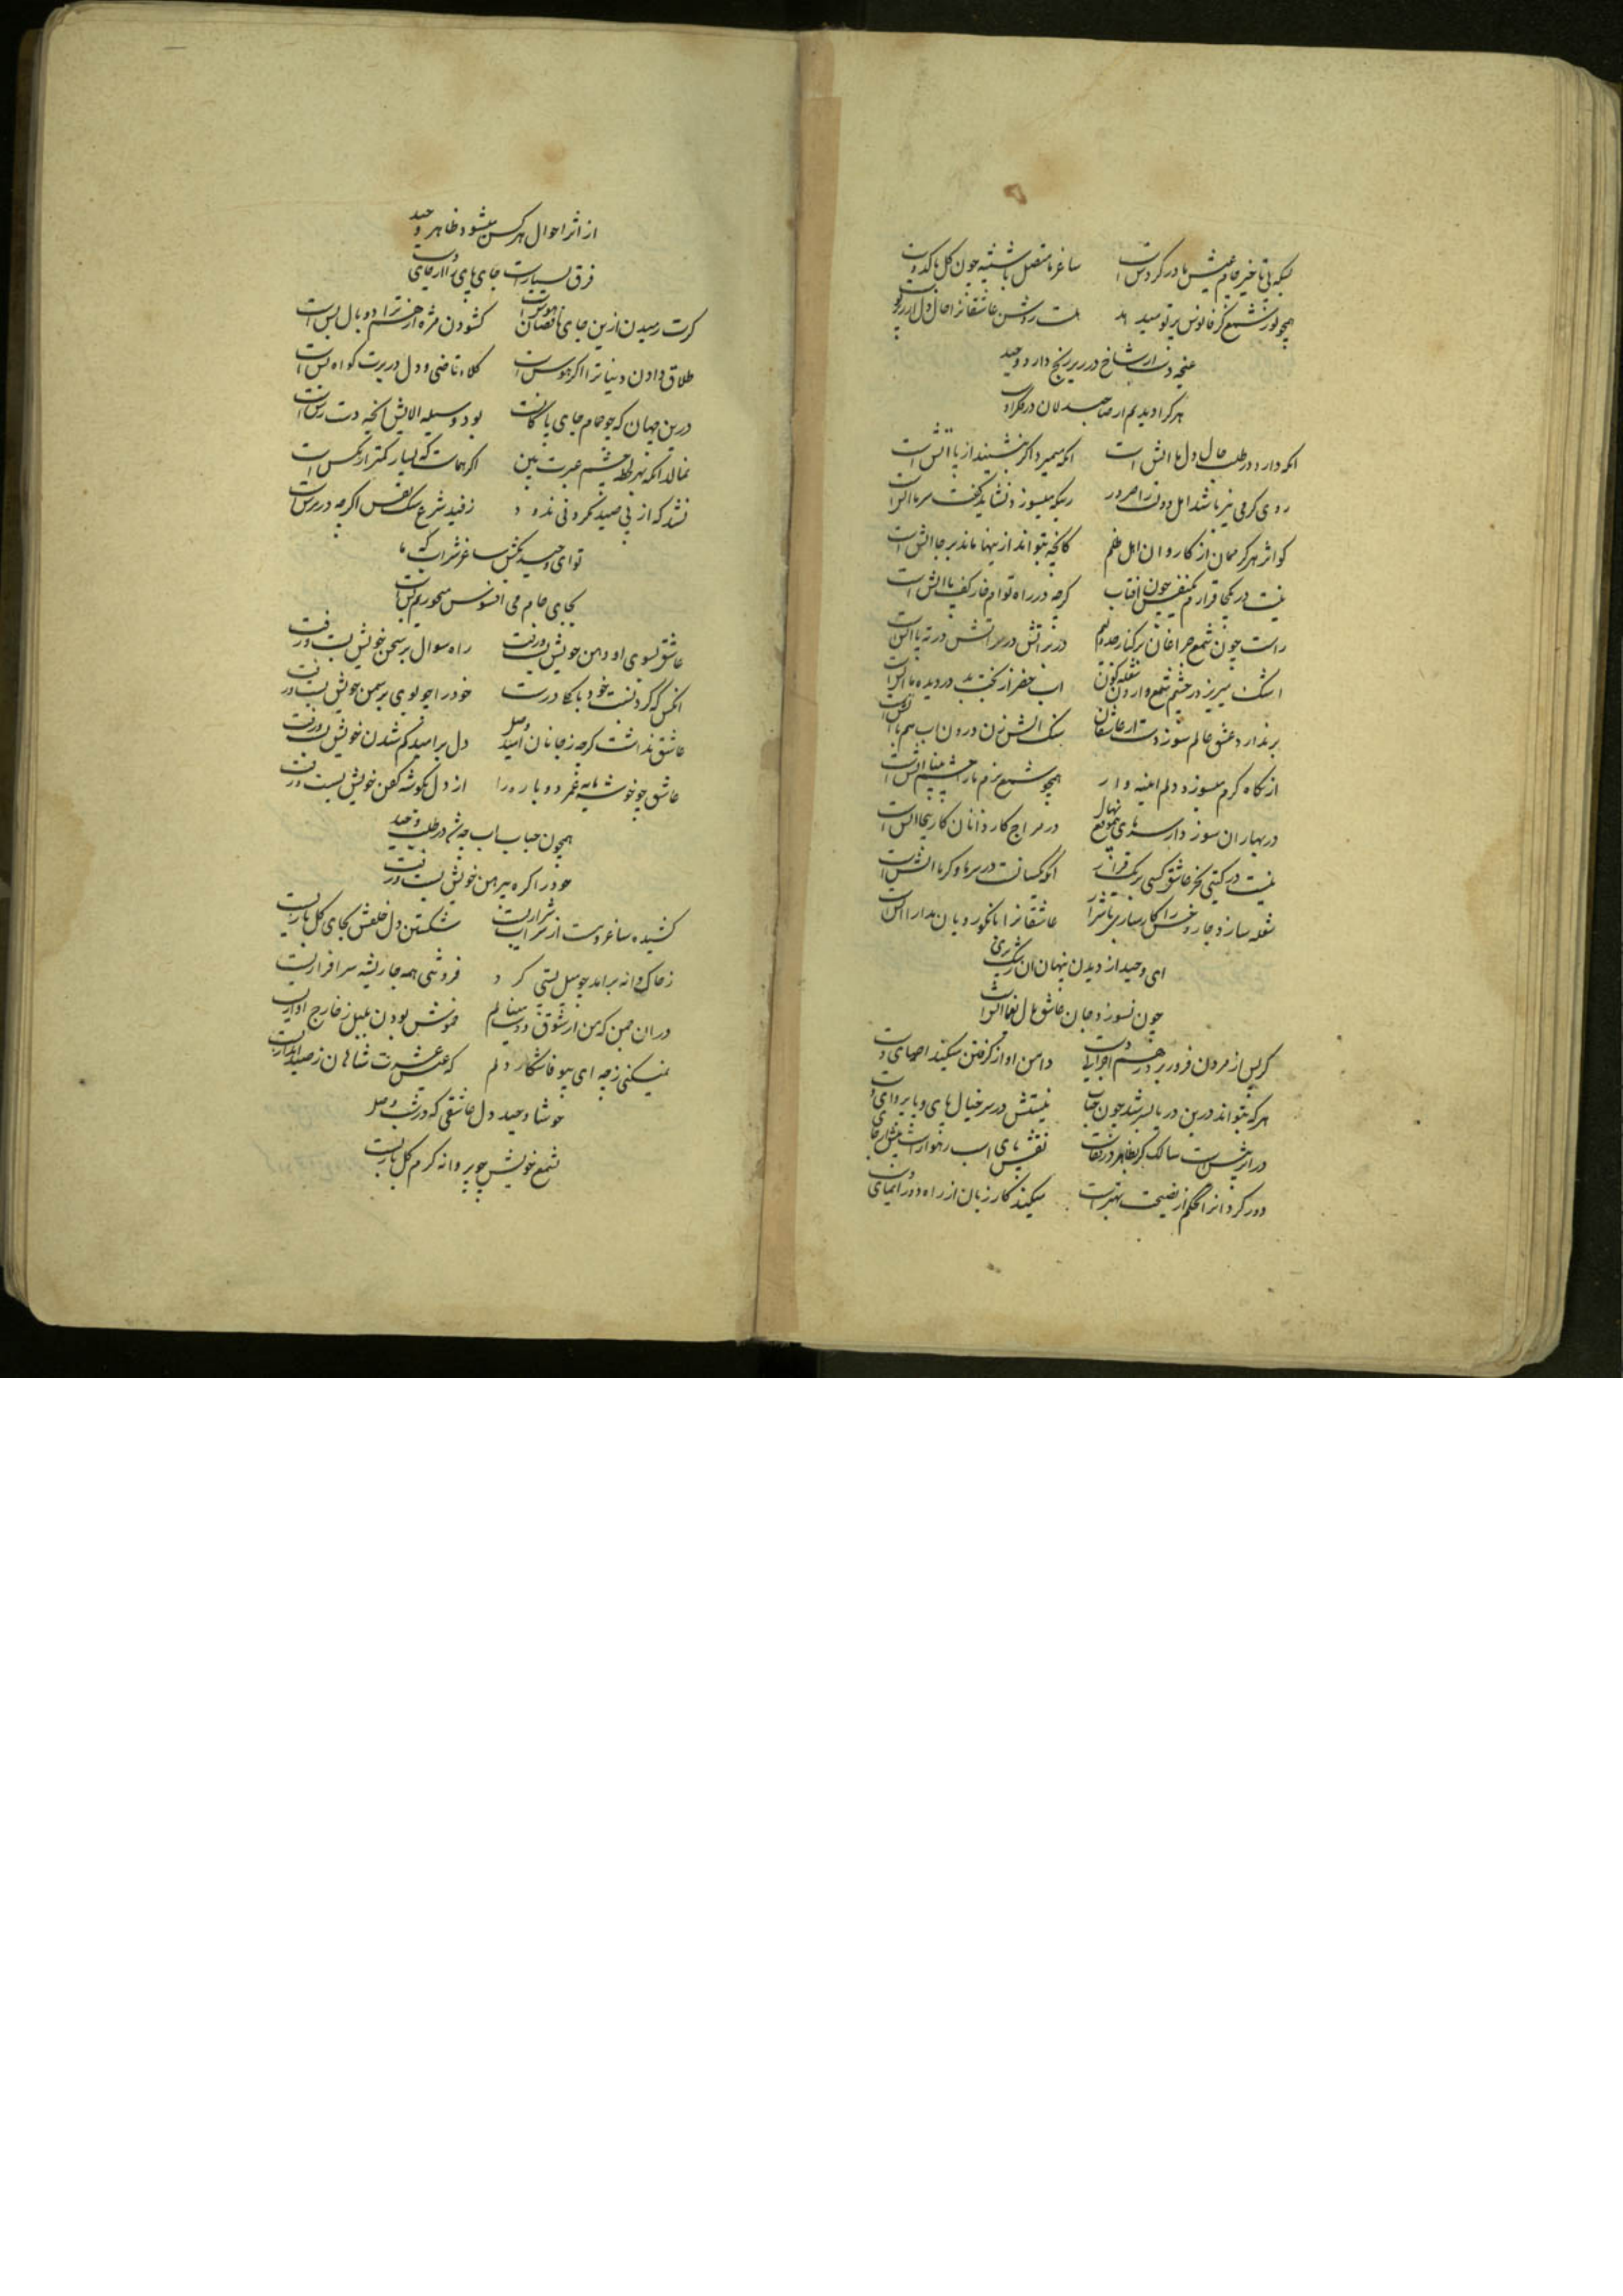 بسکه بی تاخیر جام عیش ما در کردش است ساغر ما متصل با شیشه چون کل با کدوست
همچو نور شمع کز فانوس پرتو میدهد هست روشن عاشقانرا حال دل از
غنچه دست از شاخ در زیر زنخ دارد وحید
هر کرا دیدیم از صاحبدلان در فکر اوست
انکه دارد در طلب حال دل ما اتش است انکه میمیرد اگر بنشیند از پا اتش است
روی کرمی نیز باشد اهل دولت را ضرور ریکه میسوزد نشاید کفت سرما اتش است
کو اثر هر کز ممان از کاروان اهل ظلم کانچه بتواند از اینها ماند بر جا اتش است
نیست در یکجا قرارم یکنفس چون افتاب کرچه در راه توام خار کف پا اتش است
راست چون شمع چراغان بر کنار دم در بر اتش در سر اتش در ته پا اتش است
اشک میریزد ز چشم شمع واژون شعله کون اب خضر از بخت بد در دیده ما اتش است
بر ندارد عشق عالم سوز دست از عاشقان سنک اتش زن درون اب هم با اتش است
از نکاه کرم میسوزد دلم اینه وار همچو شمع بزم ما را چشم بینا اتش است
در بهاران سوزد از سردی بیموقع نهال در مزاج کاردانان کار بیجا اتش است
نیست در کیتی بجز عاشق کسی بر یک قرار انکه یکسانست در سرما و کرما اتش است
شعله سازد خار و خس را کار سازی شرار عاشقانرا با نکورویان مدارا اتش است
ای وحید از دیدن پنهان ان رشک پری
چون نسوزد جان عاشق دل اتش است
کر پس از مردن فرو ریزد ز هم اجزای دست دامن او از کرفتن میکند احیای دست
هر که بتواند درین دریا بسر شد چون حباب نیستش در سر خیال پای و یا پروای دست
در اثر بیش است سالک کر بظاهر در قفاست نقش پای اسب رهوار است بیش از جای
دور کردانرا تکلم از نصیحت بهتر است میکند کار زبان از راه دور ایمای دست
از اثر احوال هر کس میشود ظاهر وحید
فرق بسیار است جای پای را از جای دست
کرت رمیدن ازین جای پر نقصان هوس است کشودن مژه از هم ترا دو بال بس است
طلاق دادن دنیا ترا اکر هوس است کلاه قاضی و دل در برت کواه بس است
درین جهان که چو حمام جای پاکانست بود وسیله الایش انچه دست رس است
نماند انکه بهر لحظه چشم عبرت بین اکر هماست که بسیار کمتر از مکس است
نشد که از پی صید نکرونی ندود ز قید شرع سک نفس اکرچه در مرس است
تو ای وحید بکش ساغر شراب که ما
بجای جام می افسوس میخوریم بس است
عاشق بسوی او دهن خویش بست و رفت راه سوال بر سخن خویش بست و رفت
انکس که کرد نسبت خود با نکار درست خود را چو بوی بر سمن خویش بست و رفت
عاشق نداشت کرچه ز جانان امید وصل دل بر امید کم شدن خویش بست و رفت
عاشق چو خوشه مایه عمر دوباره را از دل بکوشه کفن خویش بست و رفت
همچون حباب اب چه شد در طلب وحید
خود را کره به پیرهن خویش بست و رفت
کشیده ساغر و مست از شراب شکستن دل خلقش بجای کل بازیست
ز خاک دانه براید چو میل پستی کرد فروتنی همه جا ریشه سرافرازیست
در ان چمن که من از شوق دوست مینالم خموش بودن بلبل ز خارج اوازیست
نمیکنی ز چه ای بیوفا شکار دلم که عیش و عشرت شاهان ز صید اندازیست
خوشا وحید دل عاشقی که در شب وصل
بشمع خویش چو پروانه کرم کل بازیست